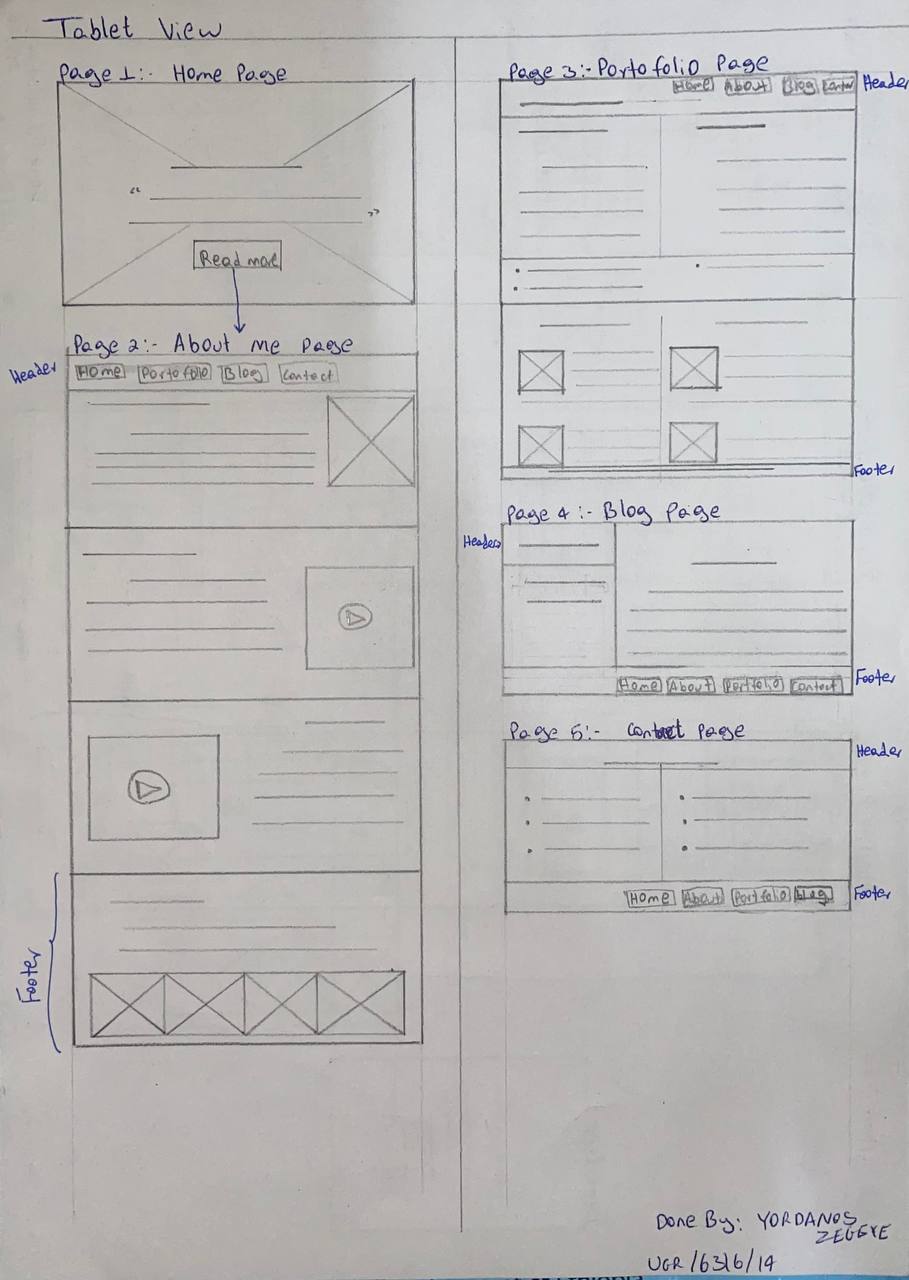 Tablet View
Page 1:- Home Page
“
”
Read more
Page 2:- About me page
Header
Home Portofolio Blog Contact
Footer
Page 3:- Portofolio Page
Home About Blog Contact
Header
Footer
Page 4:- Blog Page
Header
Home About Portfolio Contact
Footer
Page 5:- Contact Page
Header
Home About Portfolio blog
Footer
Done By: YORDANOS
UGR/6316/14